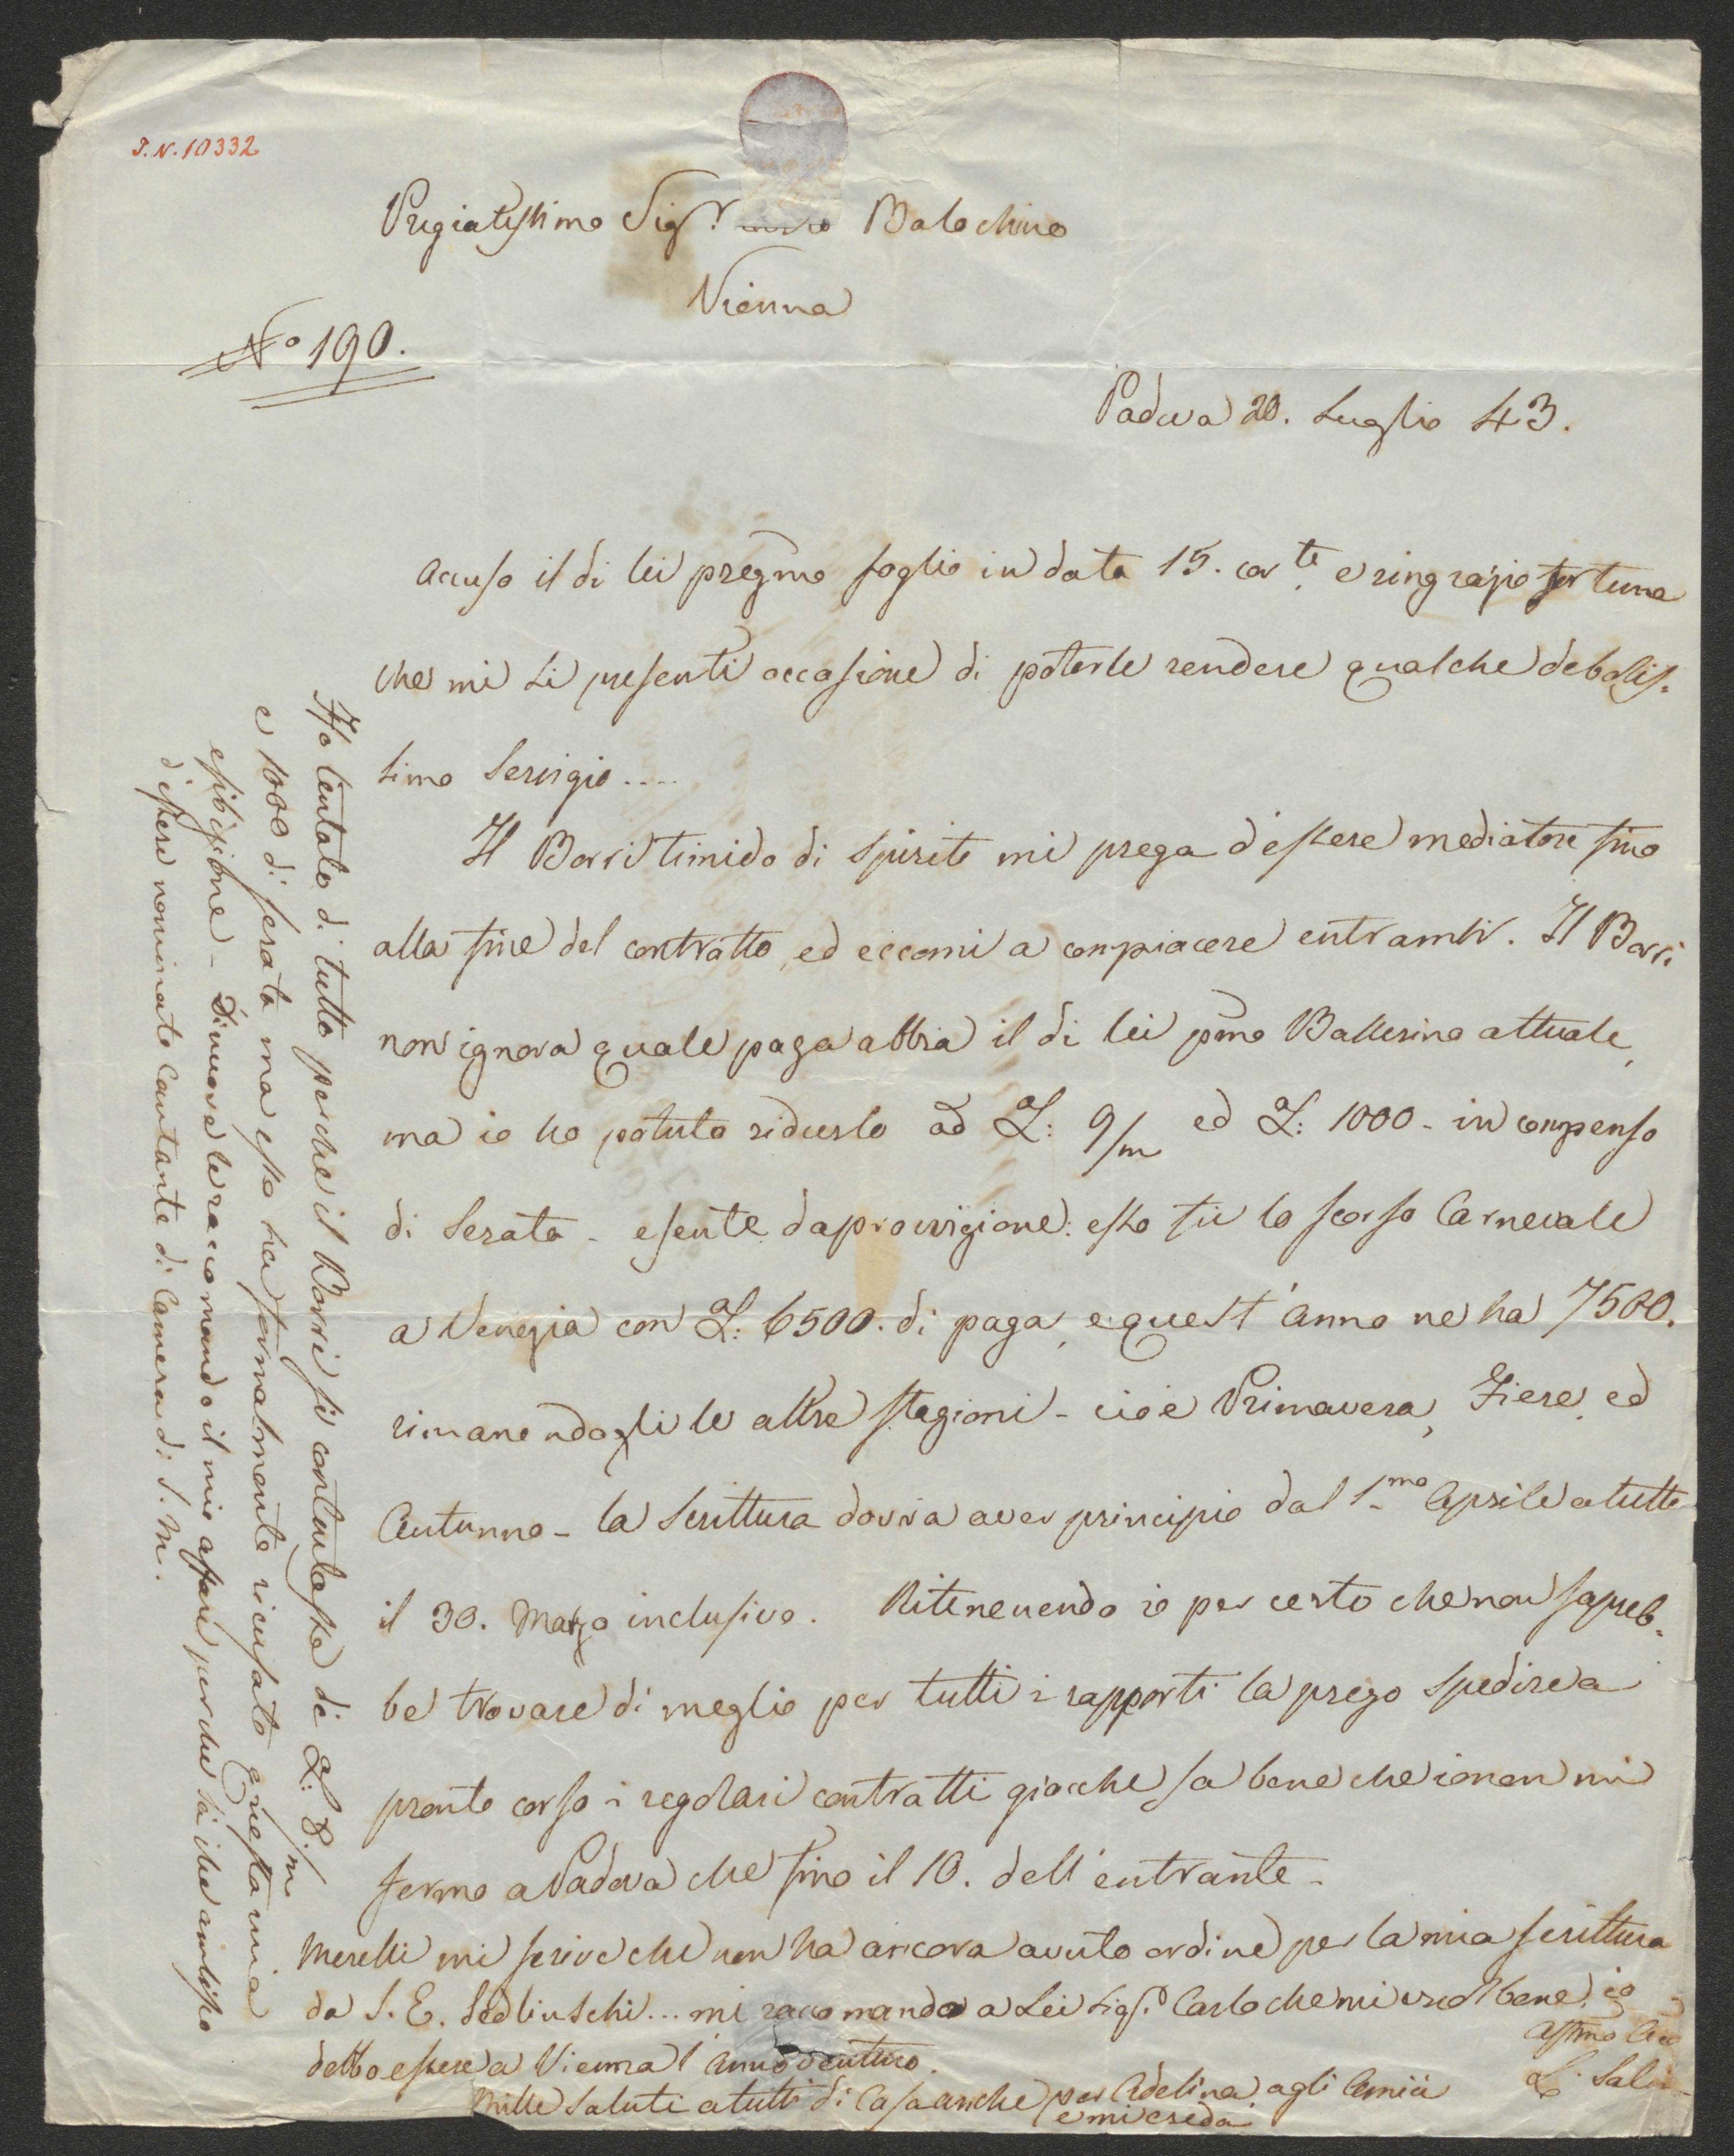 I.N. 10332
Pregiatissimo Sigr. Balochino
Vienna
No 190.
Padova 20. Luglio 43.
Accuso il di lei pregmo foglio in data 15. corte. e ringrazio fortuna
che mi si presenti occasione di poterle rendere qualche debolis-
simo Servigio ....
Il Borri timido di Spirito mi prega d'essere mediatore fino
alla fine del contratto, ed eccomi a compiacere entrambi. Il Borri
non ignora quale paga abbia il di lei pmo Ballerino attuale,
ma io ho potuto ridurlo ad L: 9/m ed L: 1000 - in compenso
di Serata - esente da provvigione: esso fu lo scorso Carnevale
a Venezia con L: 6500. di paga, e quest'anno ne ha 7500.
rimanendogli le altre stagioni - cioè Primavera, Fiere, ed
Autunno - la Scrittura dovria aver principio dal 1mo Aprile a tutto
il 30. Marzo inclusivo. Ritenenendo io per certo che non sapreb-
be trovare di meglio per tutti i rapporti la prego spedire a
pronto corso i regolari contratti giacche sa bene che io non mi
fermo a Padova che fino il 10. dell'entrante -
Merelli mi scrive che non ha ancora avuto ordine per la mia scrittura
da S. E. Sedlinschi... mi raccomando a Lei Sigr. Carlo che mi vuol bene, io
debbo essere a Vienna l'anno venturo.
Mille Saluti a tutti di Casa anche per Adelina, agli Amici
e mi creda
Affmo
L. Salvi
Ho tentato di tutto perche il Borri si contentasse di L: 8/m
e 1000 di serata ma esso ha formalmente ricusato questa mia
esibizione - Di nuovo le raccomando il mio affare perche sà che ambisco
d'essere nominato Cantante di Camera di S. M.